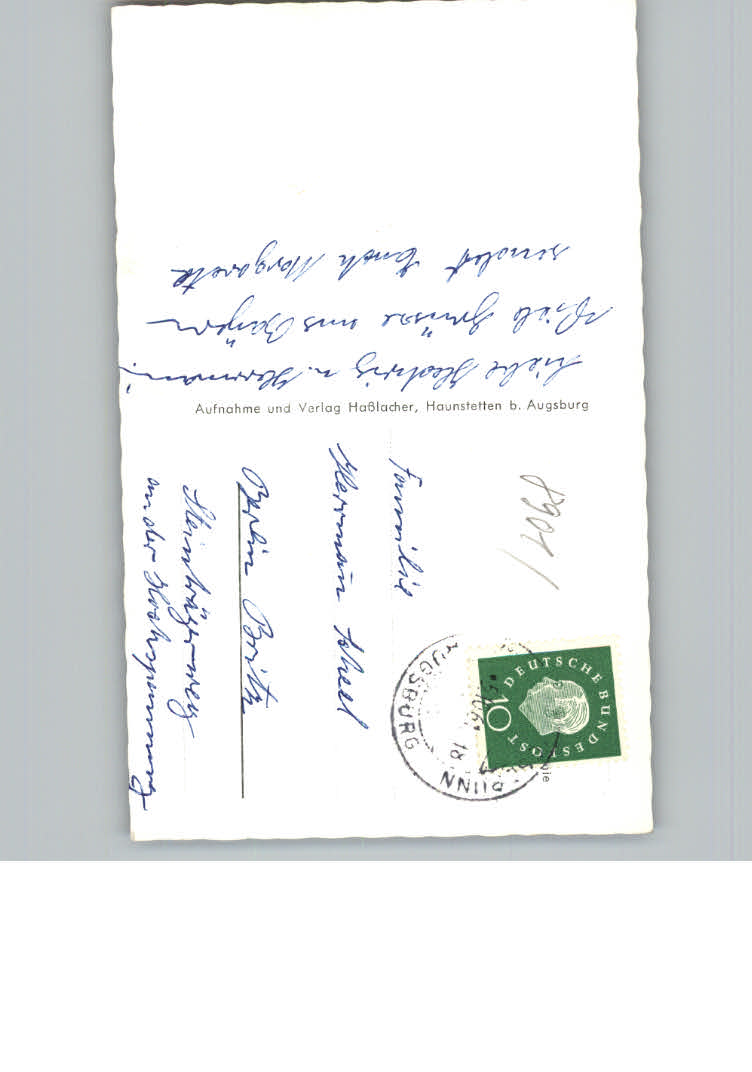 Liebe Hedwig u. Herrman,
Viele Grüsse aus Bayern
sendet Euch Margarete
Aufnahme und Verlag Haßlacher, Haunstetten b. Augsburg
Familie
Herrman Scheel
Berlin Britz
Steinträgerweg
an der Hochspannung
8907
DEUTSCHE BUNDESPOST
10
AUGSBURG